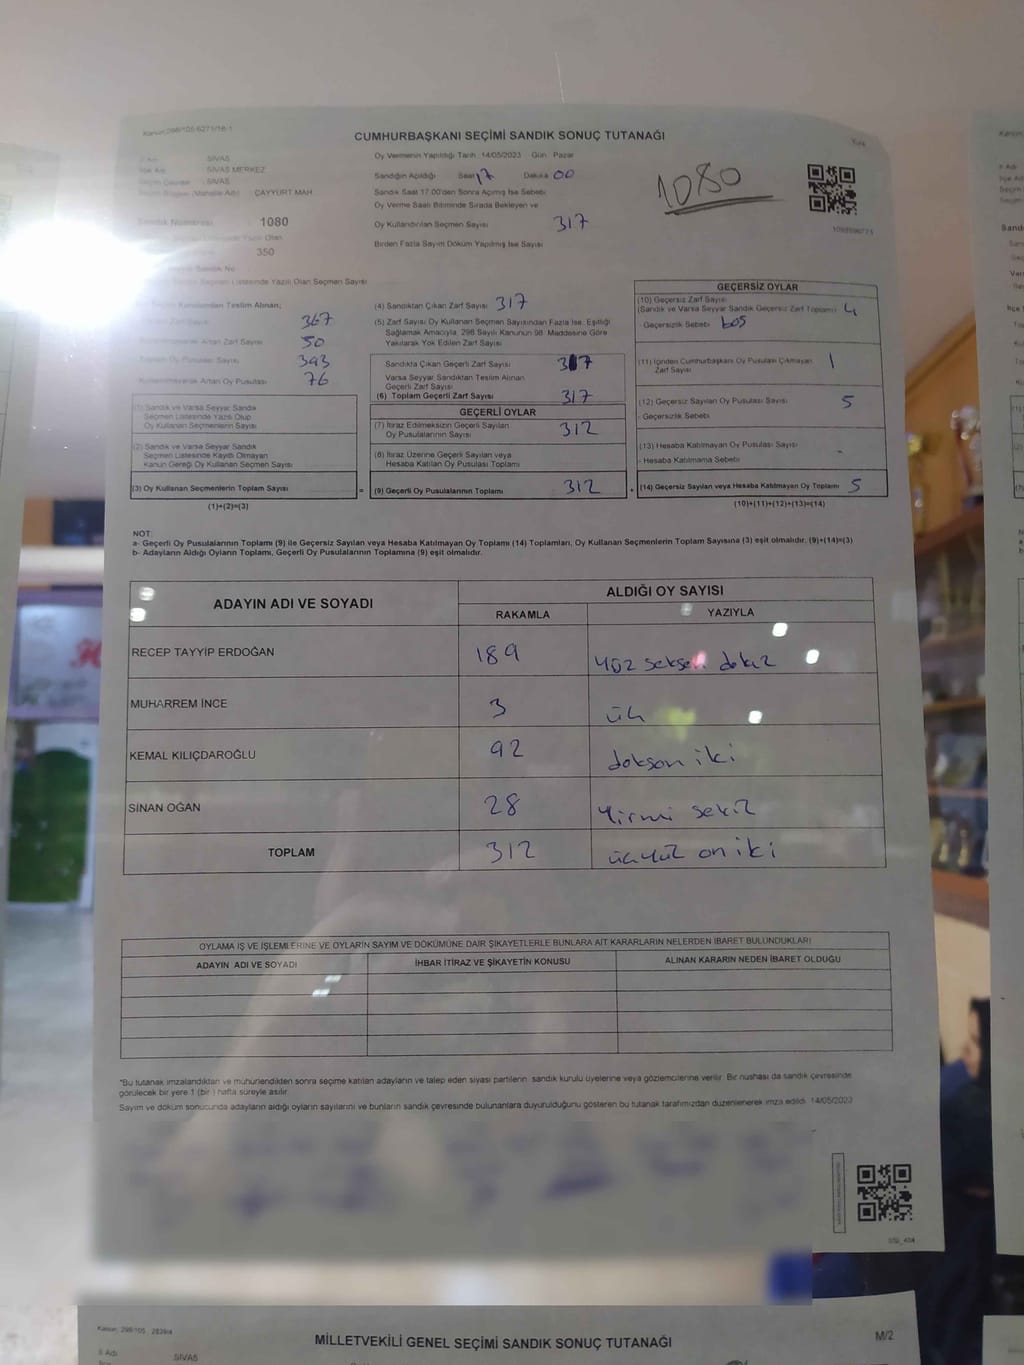 Kanun:298/105/6271/16/1
CUMHURBAŞKANI SEÇİMİ SANDIK SONUÇ TUTANAĞI
Oy Vermenin Yapıldığı Tarih :14/05/2023 Gün : Pazar
SİVAS
SİVAS MERKEZ
SİVAS
ÇAYYURT MAH.
Sandığın Açıldığı Saat 17 Dakika 00
Sandık Saat 17.00'den Sonra Açılmış İse Sebebi
Oy Verme Saati Bitiminde Sırada Bekleyen ve
Oy Kullandırılan Seçmen Sayısı 317
Birden Fazla Sayım Döküm Yapılmış İse Sayısı
1080
Sandık Numarası 1080
350
Seçmen Listesinde Yazılı Olan Seçmen Sayısı
Kurulundan Teslim Alınan;
Zarf Sayısı 367
Artan Zarf Sayısı 50
Oy Pusulası Sayısı 393
Kullanılmayarak Artan Oy Pusulası 76
(1) Sandık ve Varsa Seyyar Sandık
Seçmen Listesinde Yazılı Olup
Oy Kullanan Seçmenlerin Sayısı
(2) Sandık ve Varsa Seyyar Sandık
Seçmen Listesinde Kaydı Olmayan
Kanun Gereği Oy Kullanan Seçmen Sayısı
(3) Oy Kullanan Seçmenlerin Toplam Sayısı =
(1)+(2)=(3)
(4) Sandıktan Çıkan Zarf Sayısı 317
(5) Zarf Sayısı Oy Kullanan Seçmen Sayısından Fazla İse, Eşitliği
Sağlamak Amacıyla, 298 Sayılı Kanunun 98. Maddesine Göre
Yakılarak Yok Edilen Zarf Sayısı
Sandıkta Çıkan Geçerli Zarf Sayısı 317
Varsa Seyyar Sandıktan Teslim Alınan
Geçerli Zarf Sayısı
(6) Toplam Geçerli Zarf Sayısı 317
GEÇERLİ OYLAR
(7) İtiraz Edilmeksizin Geçerli Sayılan
Oy Pusulalarının Sayısı 312
(8) İtiraz Üzerine Geçerli Sayılan veya
Hesaba Katılan Oy Pusulası Toplamı
(9) Geçerli Oy Pusulalarının Toplamı 312 +
GEÇERSİZ OYLAR
(10) Geçersiz Zarf Sayısı
(Sandık ve Varsa Seyyar Sandık Geçersiz Zarf Toplamı) 4
- Geçersizlik Sebebi boş
(11) İçinden Cumhurbaşkanı Oy Pusulası Çıkmayan
Zarf Sayısı 1
(12) Geçersiz Sayılan Oy Pusulası Sayısı 5
- Geçersizlik Sebebi
(13) Hesaba Katılmayan Oy Pusulası Sayısı -
- Hesaba Katılmama Sebebi
(14) Geçersiz Sayılan veya Hesaba Katılmayan Oy Toplamı 5
(10)+(11)+(12)+(13)=(14)
NOT:
a- Geçerli Oy Pusulalarının Toplamı (9) ile Geçersiz Sayılan veya Hesaba Katılmayan Oy Toplamı (14) Toplamları, Oy Kullanan Seçmenlerin Toplam Sayısına (3) eşit olmalıdır. (9)+(14)=(3)
b- Adayların Aldığı Oyların Toplamı, Geçerli Oy Pusulalarının Toplamına (9) eşit olmalıdır.
ADAYIN ADI VE SOYADI
ALDIĞI OY SAYISI
RAKAMLA YAZIYLA
RECEP TAYYİP ERDOĞAN 189 yüz seksen dokuz
MUHARREM İNCE 3 üç
KEMAL KILIÇDAROĞLU 92 doksan iki
SİNAN OĞAN 28 yirmi sekiz
TOPLAM 312 üçyüz on iki
OYLAMA İŞ VE İŞLEMLERİNE VE OYLARIN SAYIM VE DÖKÜMÜNE DAİR ŞİKAYETLERLE BUNLARA AİT KARARLARIN NELERDEN İBARET BULUNDUKLARI
ADAYIN ADI VE SOYADI İHBAR İTİRAZ VE ŞİKAYETİN KONUSU ALINAN KARARIN NEDEN İBARET OLDUĞU
*Bu tutanak imzalandıktan ve mühürlendikten sonra seçime katılan adayların ve talep eden siyasi partilerin sandık kurulu üyelerine veya gözlemcilerine verilir. Bir nüshası da sandık çevresinde
görülecek bir yere 1 (bir ) hafta süreyle asılır.
Sayım ve döküm sonucunda adayların aldığı oyların sayılarını ve bunların sandık çevresinde bulunanlara duyurulduğunu gösteren bu tutanak tarafımızdan düzenlenerek imza edildi. 14/05/2023
Kanun: 298/105 2839/4
MİLLETVEKİLİ GENEL SEÇİMİ SANDIK SONUÇ TUTANAĞI
M/2
İl Adı
SİVAS